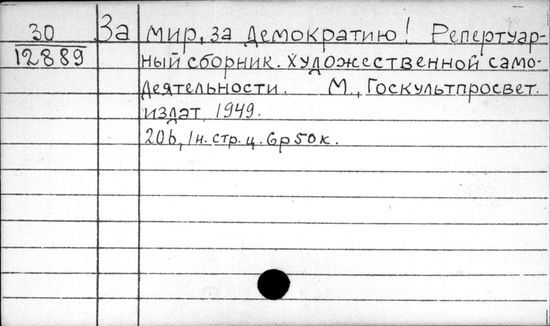 30 За мир, за демократию! Репертуар-
12889 ный сборник. художественной само-
деятельности. М., Госкультпросвет.
издат, 1949.
206, 1н. стр. ц. 6р50к.